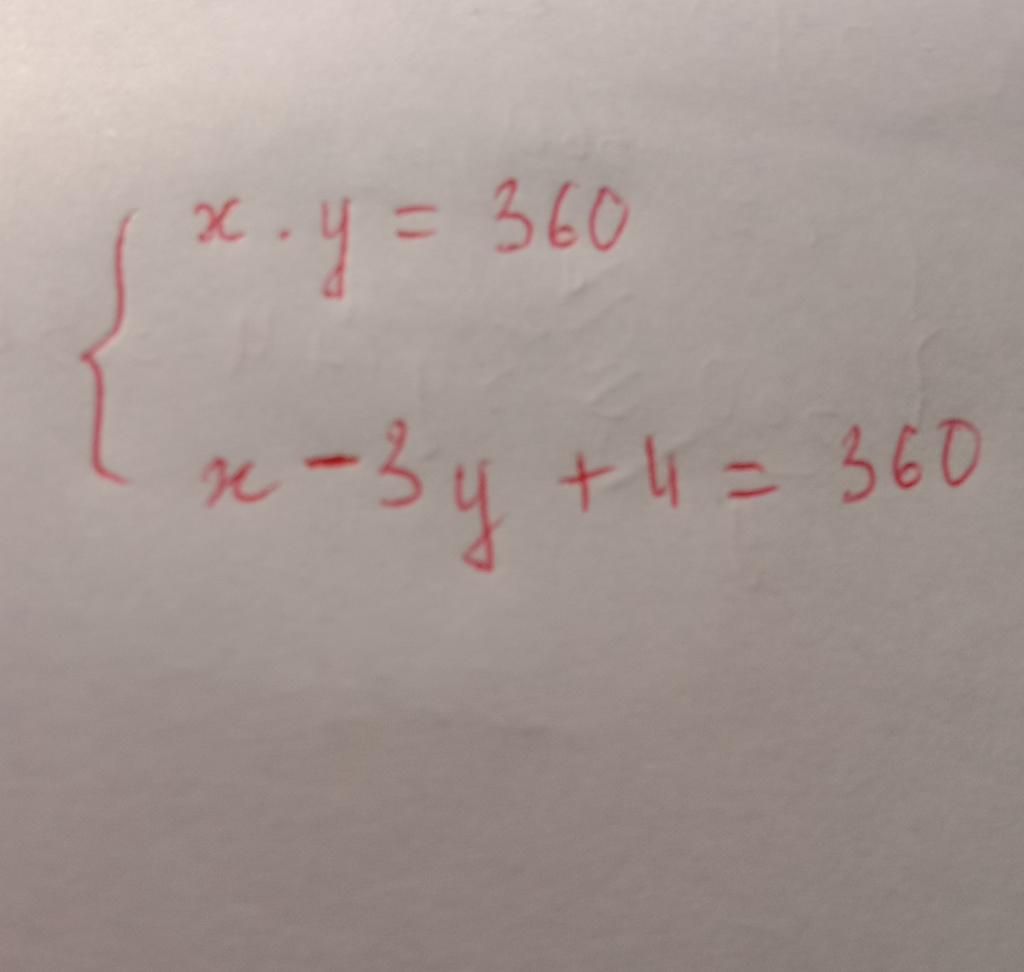 x . y = 360
x - 3y + 4 = 360